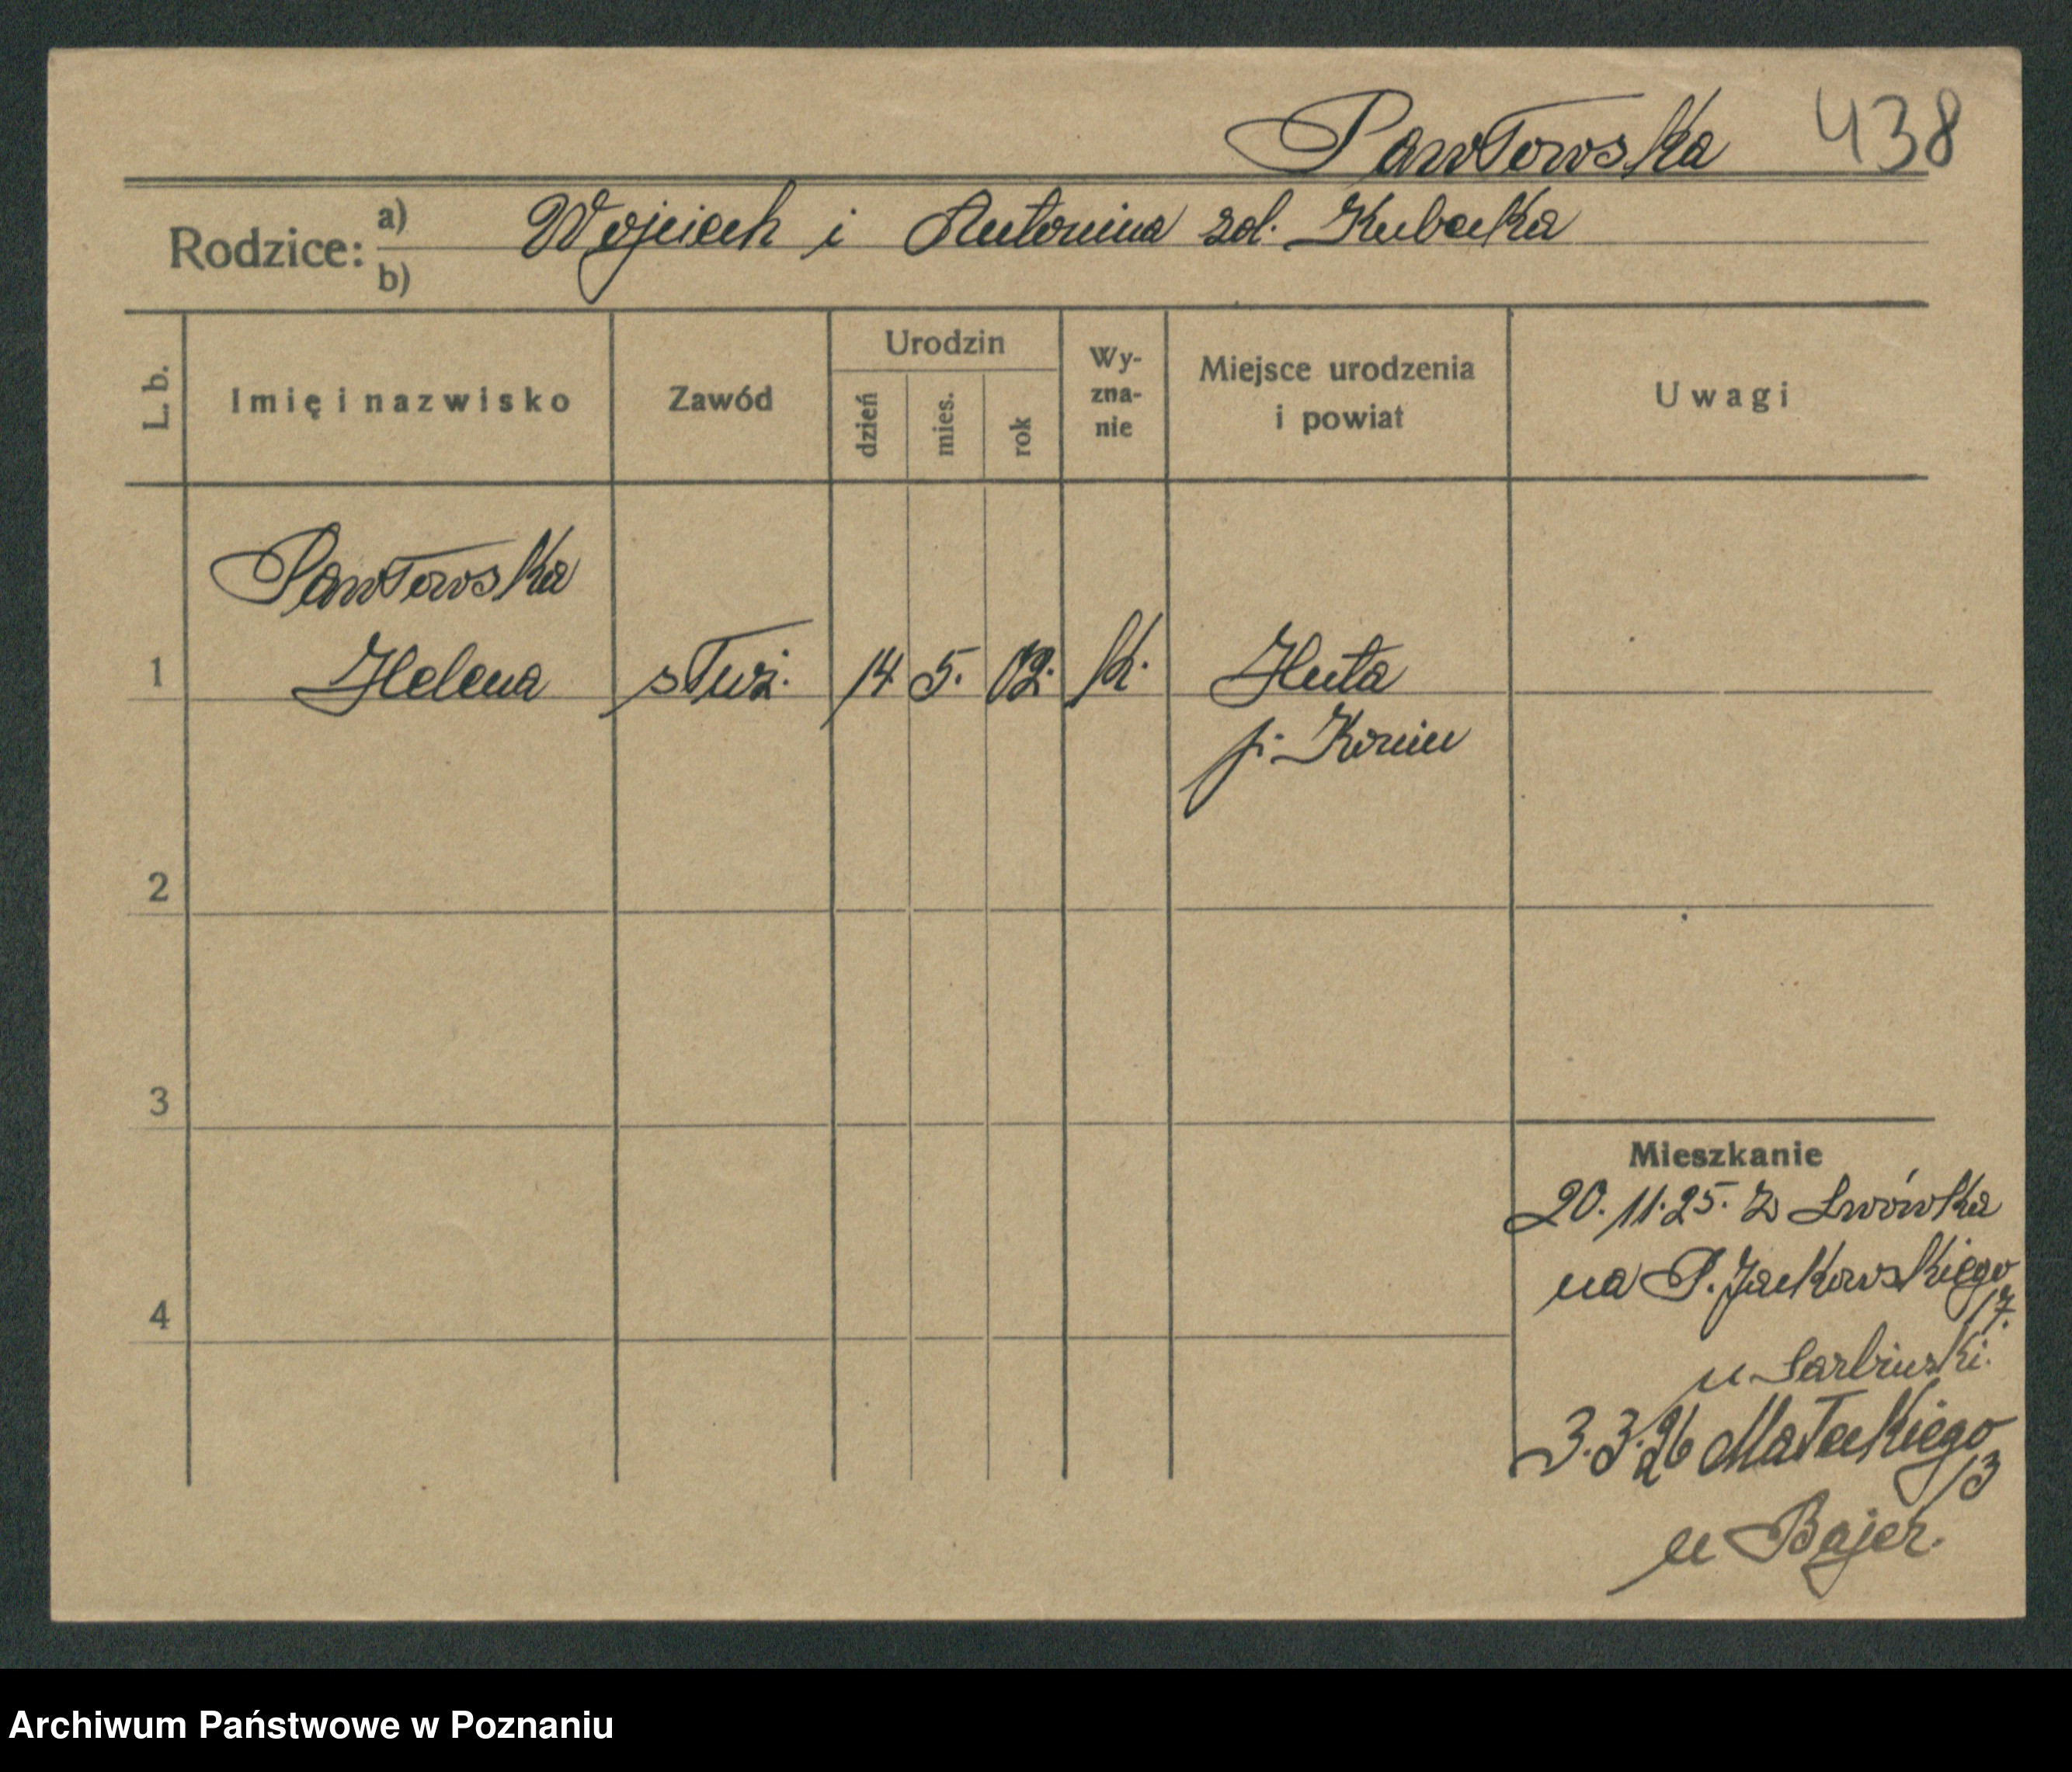 Pawłowska 438
Rodzice: a) Wojciech i Antonina zd. Kubacka
b)
L. b. Imię i nazwisko Zawód Urodzin dzień mies. rok Wy-zna-nie Miejsce urodzenia i powiat Uwagi
Pawłowska
1 Helena służ. 14 5. 02. k. Huta
p. Konin
2
3
Mieszkanie
20. 11. 25. z Lwówka
na P. Jackowskiego
17.
4
u
3. 3. 26 Małeckiego
13
u Bajer.
Archiwum Państwowe w Poznaniu